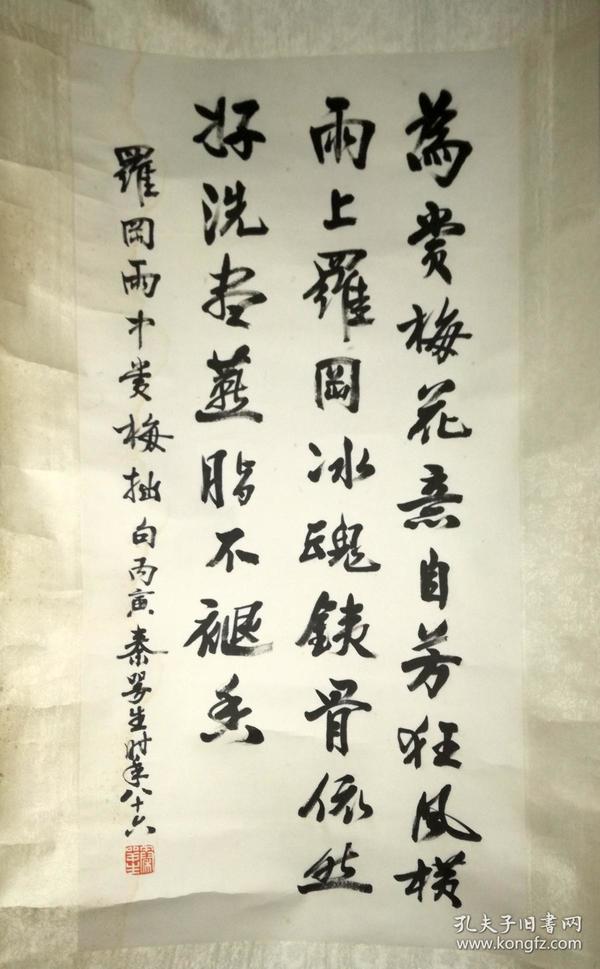 為賞梅花意自芳狂風橫
雨上羅岡冰魂鉄骨依然
好洗盡燕脂不褪香
羅岡雨中賞梅拙句丙寅秦咢生时年八十六
孔夫子旧書网
www.kongfz.com